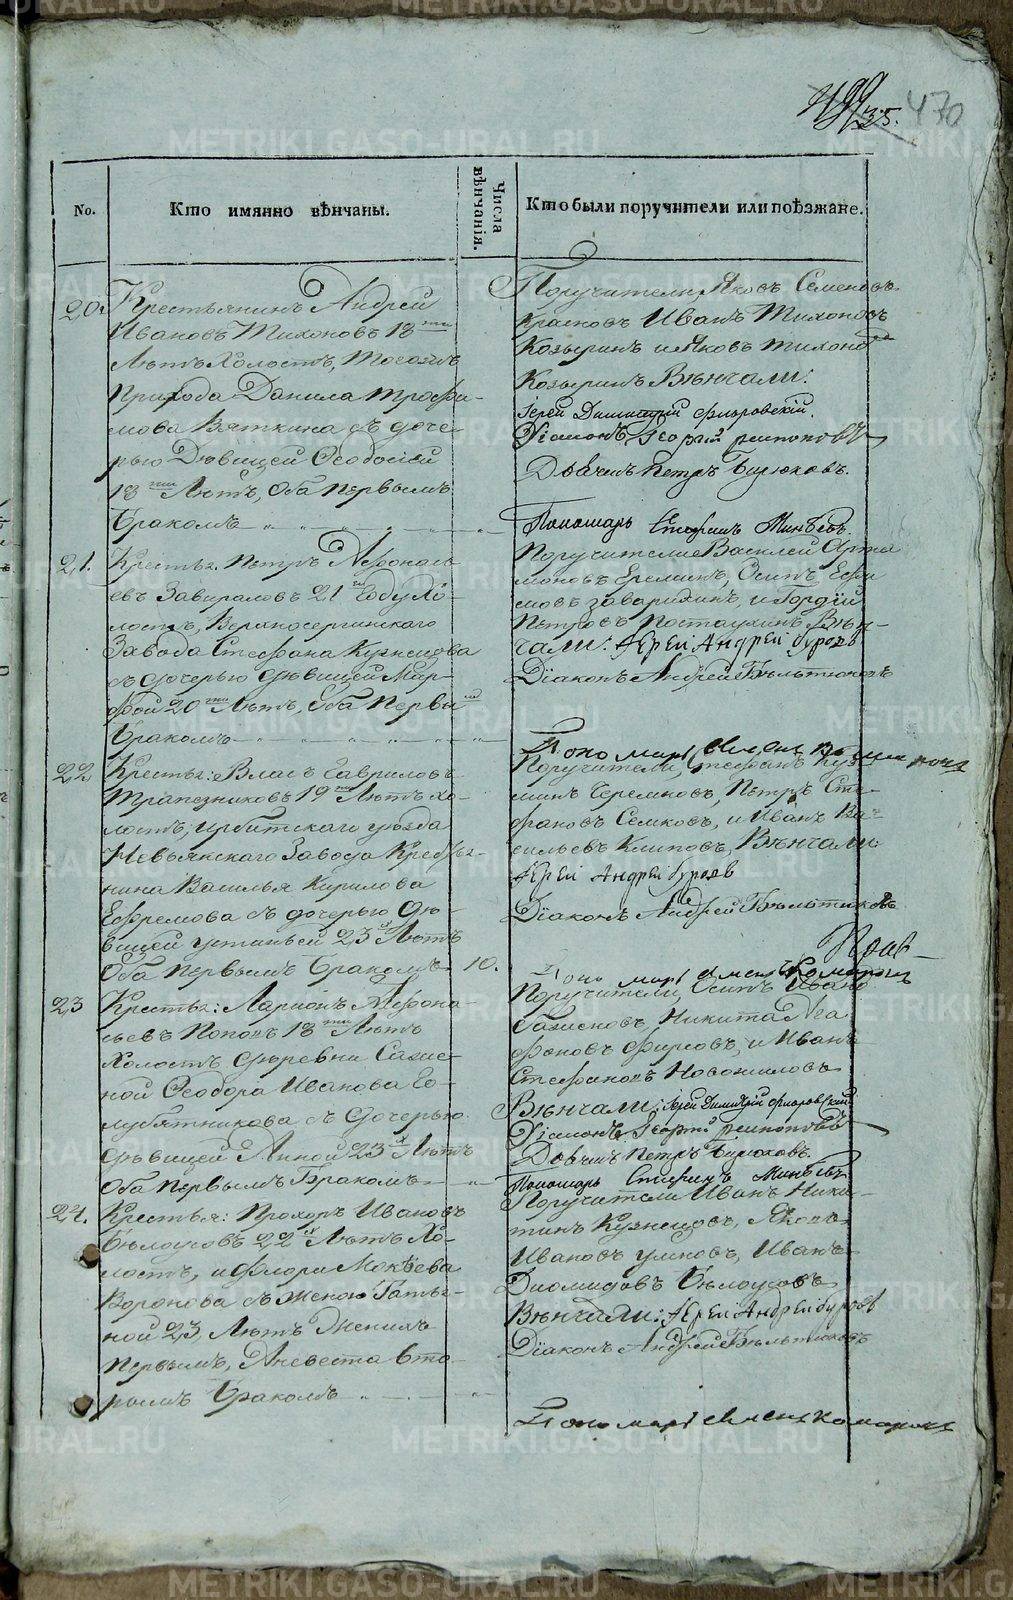 470
No.
Кто имянно вѣнчаны.
Числа вѣнчанія.
Кто были поручители или поѣзжане.
20.
Крестьянинъ Андрей
Ивановъ Тихоновъ 18
Лѣтъ Холостъ, тогожъ
Прихода Данила Трофи-
мова Вяткина съ доче-
рью Дѣвицей Ѳеодосіей
18 Лѣтъ, Оба первымъ
Бракомъ
Поручители Яковъ Семеновъ
Иванъ Тихоновъ
Козыринъ и Яковъ Тихоно
Козыринъ Вѣнчали:
Іерей Димитрій Флоровскій.
Діаконъ Георгій
Дьячекъ Петръ Бирюковъ.
Пономарь Стефанъ Минѣевъ
21.
Крестья. Петръ Афонась
евъ Завираловъ 21 году Хо-
лостъ, Верхносергинскаго
Завода Стефана Кузнецова
съ дочерью дѣвицей Мар-
фой 20 Лѣтъ, Оба Первы
Бракомъ
Поручители Василей Арта
моновъ Ереминъ, Осипъ Ефи
мовъ и Гордій
Петровъ Постаухинъ Вѣн-
чали: Іерей Андрей Буровъ
Діаконъ Андрей Бѣльтюковъ
22
Крестья: Власъ Гавриловъ
Трапезниковъ 19 Лѣтъ хо-
лостъ, Ирбитскаго уѣзда
Невьянскаго Завода Крестья-
нина Василья Кирилова
Ефремова съ дочерью дѣ-
вицей Устиньей 23 Лѣтъ
Оба первымъ Бракомъ
10.
Поручители, Стефанъ Куз
минъ Черемновъ, Петръ Сте
фановъ Семковъ, и Иванъ Ва-
сильевъ Климовъ, Вѣнчали
Іерей Андрей Буровъ
Діаконъ Андрей Бѣльтюковъ
23
Крестья: Ларіонъ Афона-
сьевъ Поповъ 18 Лѣтъ
Холостъ деревни Сажи-
ной Ѳеодора Иванова Го-
лубятникова съ дочерью
дѣвицей Анной 23 Лѣтъ
Оба первымъ Бракомъ
Поручители, Осипъ Ивано
Никита Ага
фоновъ Фирсовъ, и Иванъ
Стефановъ Новожиловъ
Вѣнчали: Іерей Димитрій Флоровскій
Діаконъ Георгій
Дьячекъ Петръ Бирюковъ.
Пономарь Стефанъ Минѣевъ
24.
Крестья: Прохоръ Ивановъ
Бѣлоусовъ 22 Лѣтъ Хо-
лостъ, и Флора Мокѣева
Воронова съ женою Татья-
ной 23 Лѣтъ Женихъ
Первымъ, Аневеста Вто-
рымъ Бракомъ
Поручители Иванъ Ники-
тинъ Кузнецовъ, Яковъ
Ивановъ Умновъ, Иванъ
Диомидовъ Бѣлоусовъ
Вѣнчали: Іерей Андрей Буровъ
Діаконъ Андрей Бѣльтюковъ
Пономарь Комаровъ
METRIKI.GASO-URAL.RU